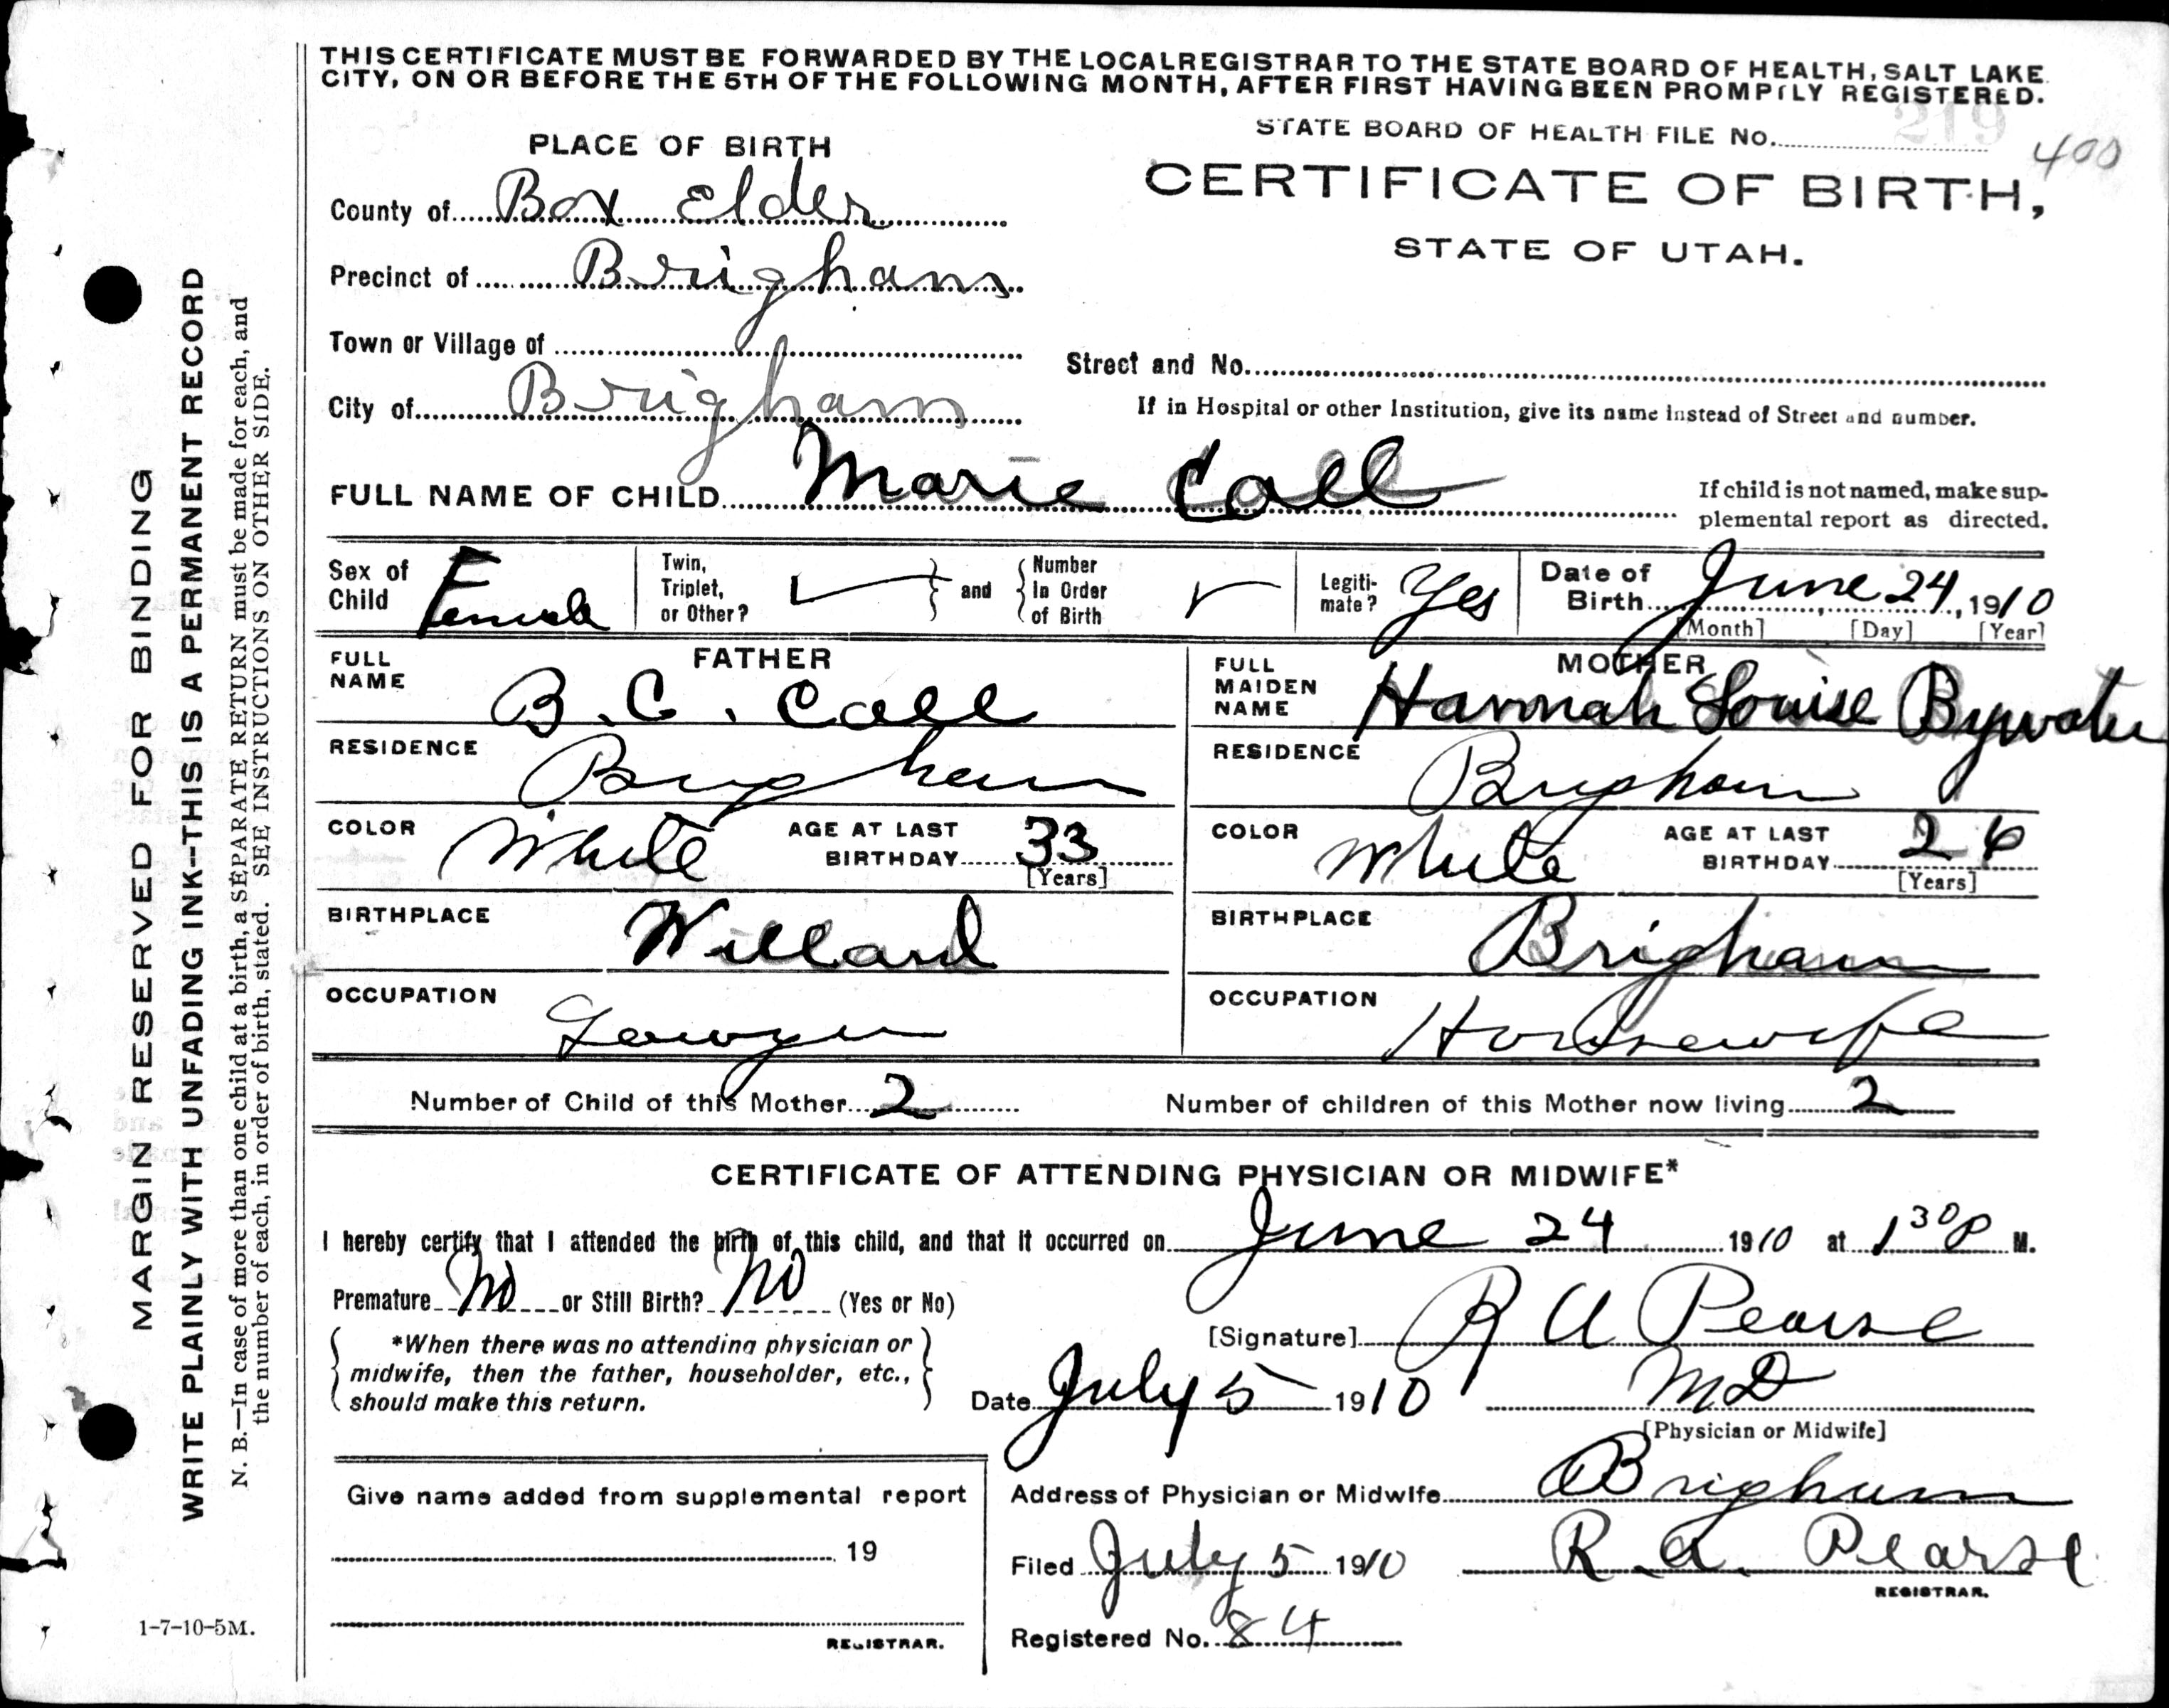 THIS CERTIFICATE MUST BE FORWARDED BY THE LOCAL REGISTRAR TO THE STATE BOARD OF HEALTH, SALT LAKE
CITY, ON OR BEFORE THE 5TH OF THE FOLLOWING MONTH, AFTER FIRST HAVING BEEN PROMPTLY REGISTERED.
PLACE OF BIRTH
STATE BOARD OF HEALTH FILE No. 219
400
County of Box Elder
CERTIFICATE OF BIRTH,
STATE OF UTAH.
Precinct of Brigham
Town or Village of
Street and No.
City of Brigham
If in Hospital or other Institution, give its name instead of Street and number.
FULL NAME OF CHILD Marie Call
If child is not named, make sup-
plemental report as directed.
Sex of Child Female
Twin, Triplet, or Other? and Number In Order of Birth
Legiti-mate? Yes
Date of Birth June 24, 1910
[Month] [Day] [Year]
FATHER
FULL NAME B. C. Call
RESIDENCE Brigham
COLOR White AGE AT LAST BIRTHDAY 33
[Years]
BIRTHPLACE Willard
OCCUPATION Lawyer
MOTHER
FULL MAIDEN NAME Hannah Louise Bywater
RESIDENCE Brigham
COLOR White AGE AT LAST BIRTHDAY 26
[Years]
BIRTHPLACE Brigham
OCCUPATION Housewife
Number of Child of this Mother 2 Number of children of this Mother now living 2
CERTIFICATE OF ATTENDING PHYSICIAN OR MIDWIFE*
I hereby certify that I attended the birth of this child, and that it occurred on June 24 1910 at 1 30 P M.
Premature No or Still Birth? No (Yes or No)
*When there was no attending physician or
midwife, then the father, householder, etc.,
should make this return.
[Signature] R A Pearse
Date July 5 1910 M D
[Physician or Midwife]
Give name added from supplemental report
19
REGISTRAR.
Address of Physician or Midwife Brigham
Filed July 5 1910 R. A. Pearse
REGISTRAR.
Registered No. 84
MARGIN RESERVED FOR BINDING
WRITE PLAINLY WITH UNFADING INK--THIS IS A PERMANENT RECORD
N. B.—In case of more than one child at a birth, a SEPARATE RETURN must be made for each, and
the number of each, in order of birth, stated. SEE INSTRUCTIONS ON OTHER SIDE.
1-7-10-5M.